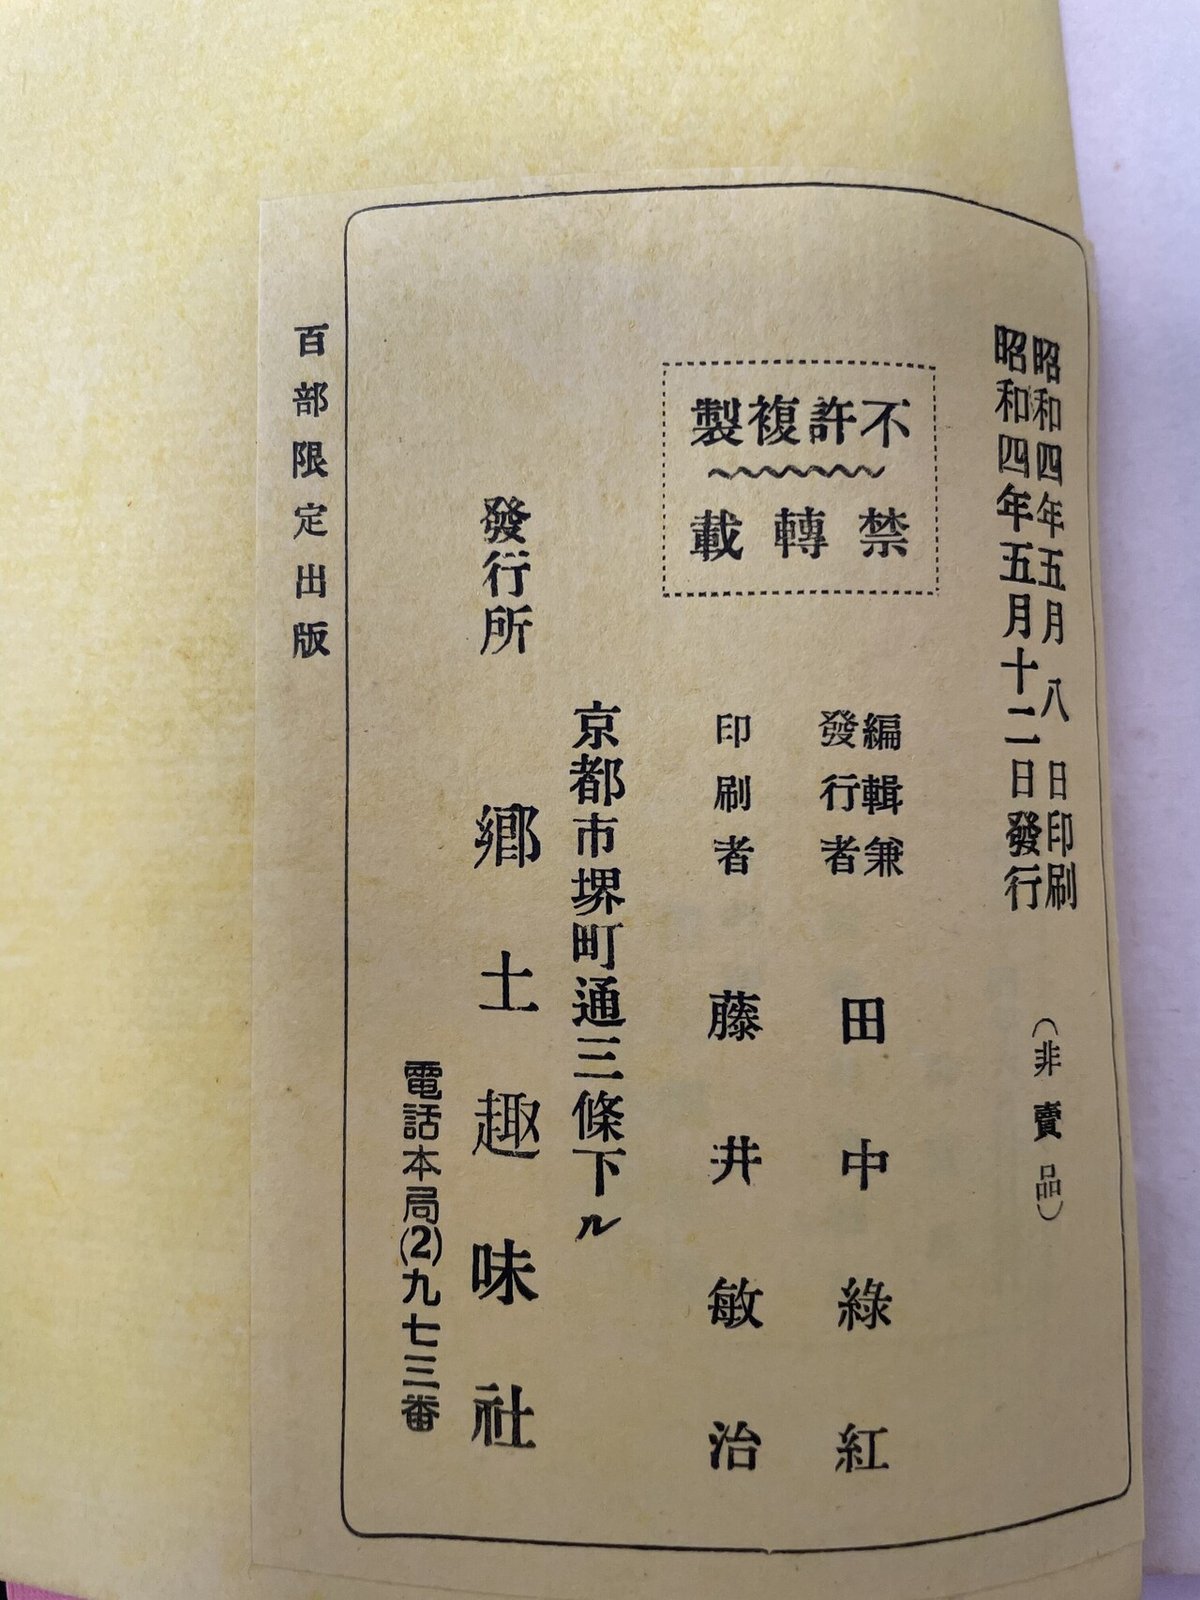 昭和四年五月八日印刷
昭和四年五月十二日發行
(非賣品)
不許複製
禁轉載
編輯兼
發行者
田中綠紅
印刷者
藤井敏治
京都市堺町通三條下ル
發行所
鄉土趣味社
電話本局(2)九七三番
百部限定出版